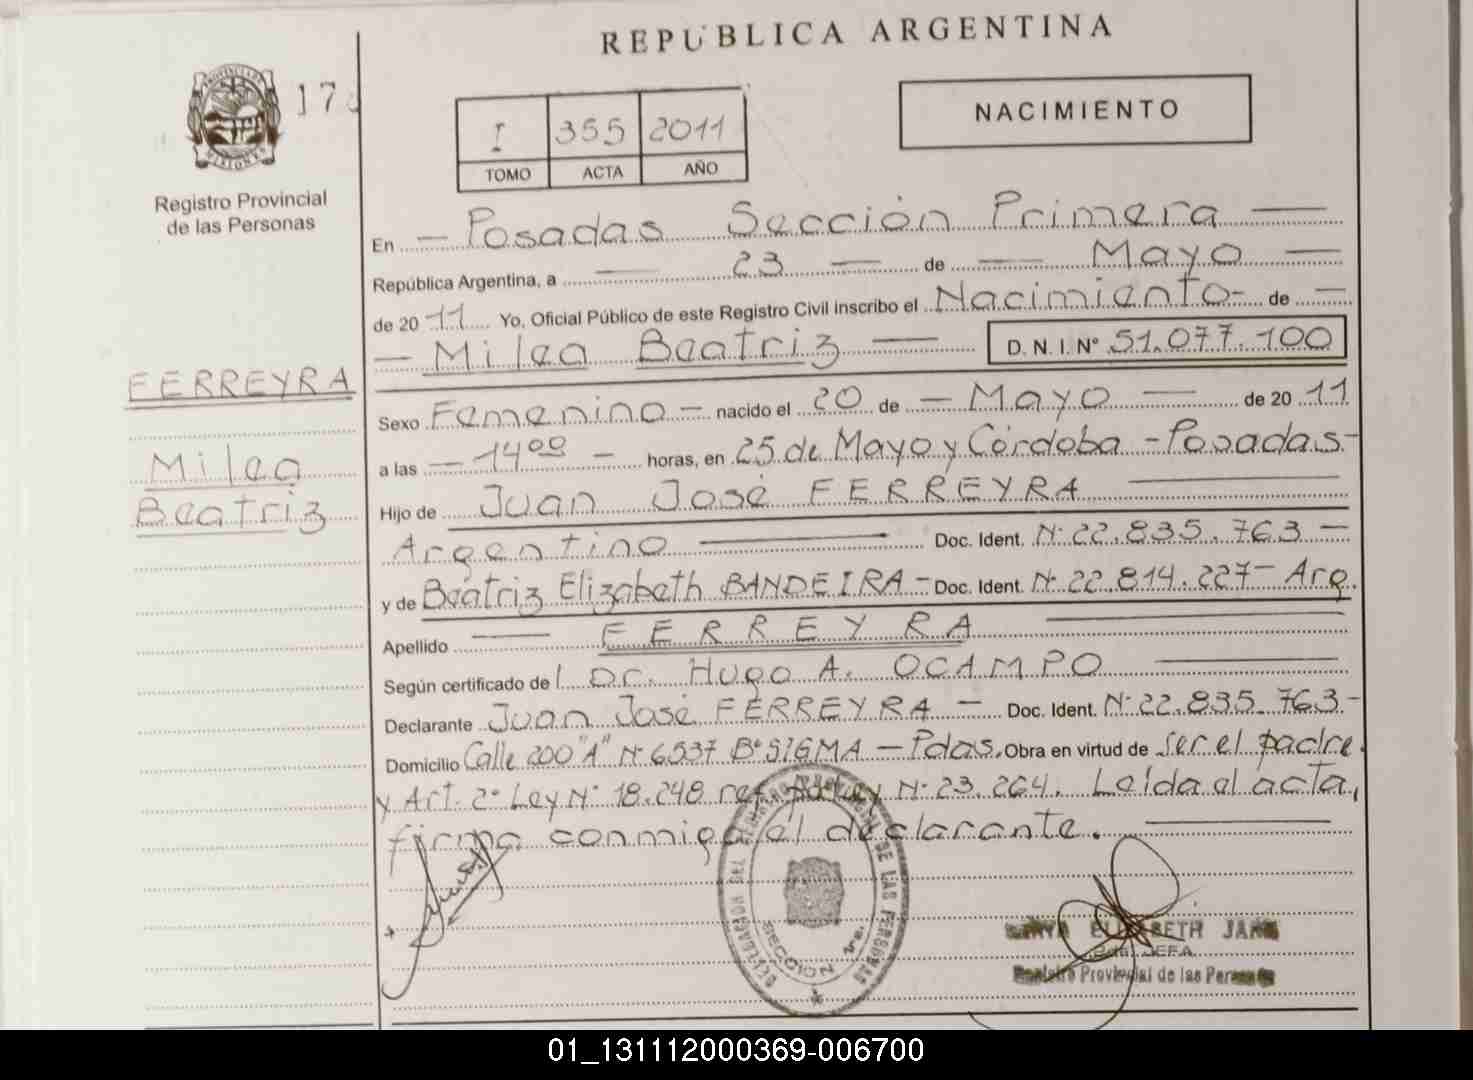 REPUBLICA ARGENTINA
PROVINCIA DE MISIONES
17
Registro Provincial
de las Personas
I 355 2011
TOMO ACTA AÑO
NACIMIENTO
En — Posadas Sección Primera —
República Argentina, a — 23 — de — Mayo —
de 20 11 Yo, Oficial Público de este Registro Civil inscribo el Nacimiento - de —
— Milea Beatriz — D. N. I. N° 51.077.100
FERREYRA
Milea
Beatriz
Sexo Femenino — nacido el 20 de — Mayo — de 20 11
a las — 14⁰⁰ — horas, en 25 de Mayo y Córdoba - Posadas -
Hijo de Juan José FERREYRA —
Argentino — Doc. Ident. N° 22.835.763 —
y de Beatriz Elizabeth BANDEIRA - Doc. Ident. N° 22.814.227 - Arg.
Apellido — FERREYRA —
Según certificado del Dr. Hugo A. OCAMPO —
Declarante Juan José FERREYRA — Doc. Ident. N° 22.835.763 -
Domicilio Calle 200 "A" N° 6537 B° SIGMA — Pdas. Obra en virtud de ser el padre
y Art. 2° Ley N° 18.248 ref. por Ley N° 23.264. Leída el acta,
firma conmigo el declarante. —
DELEGACION
REGISTRO PROVINCIAL DE LAS PERSONAS
SECCION 1ra.
ELIZABETH
JEFA
Registro Provincial de las Personas
01_131112000369-006700